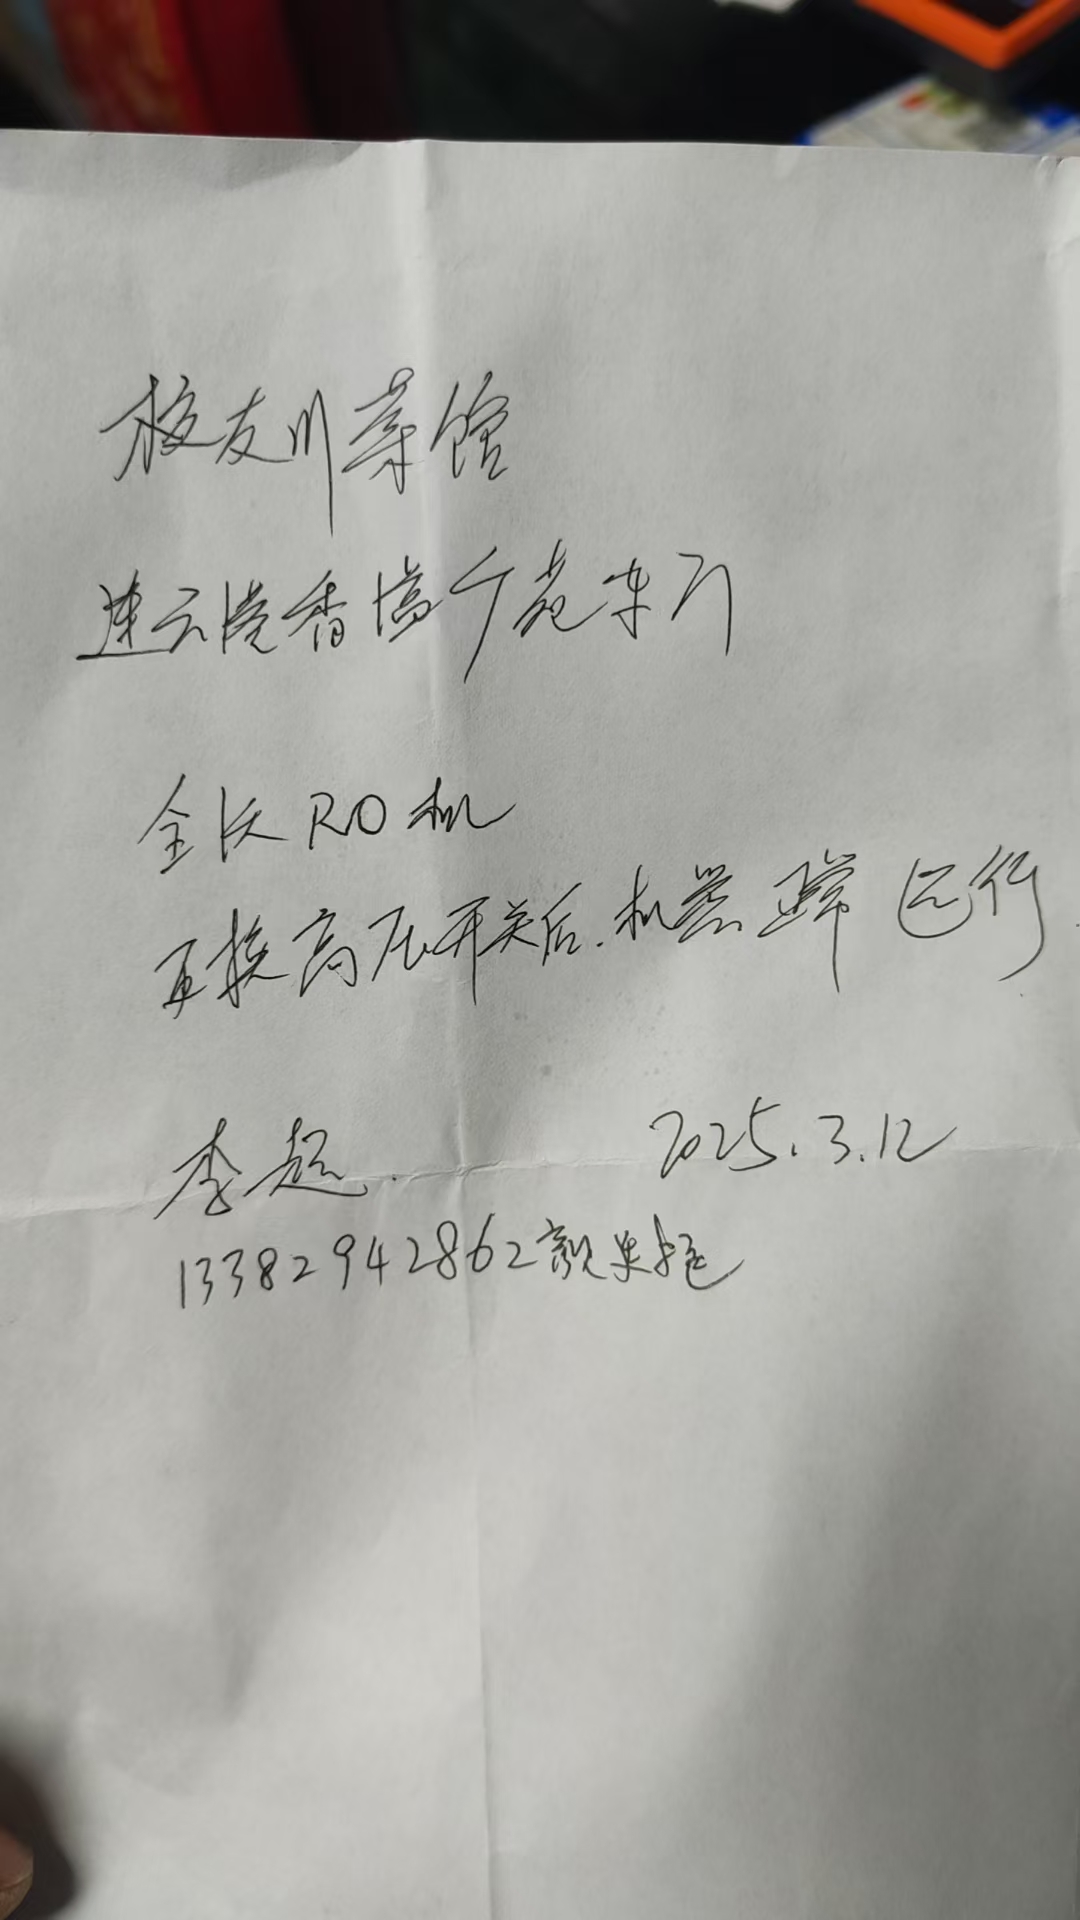 校友川菜馆
连云港香溢广苑东门
全沃RO机
直接高压开关后.机器正常运行
李超. 2025.3.12
13382942862